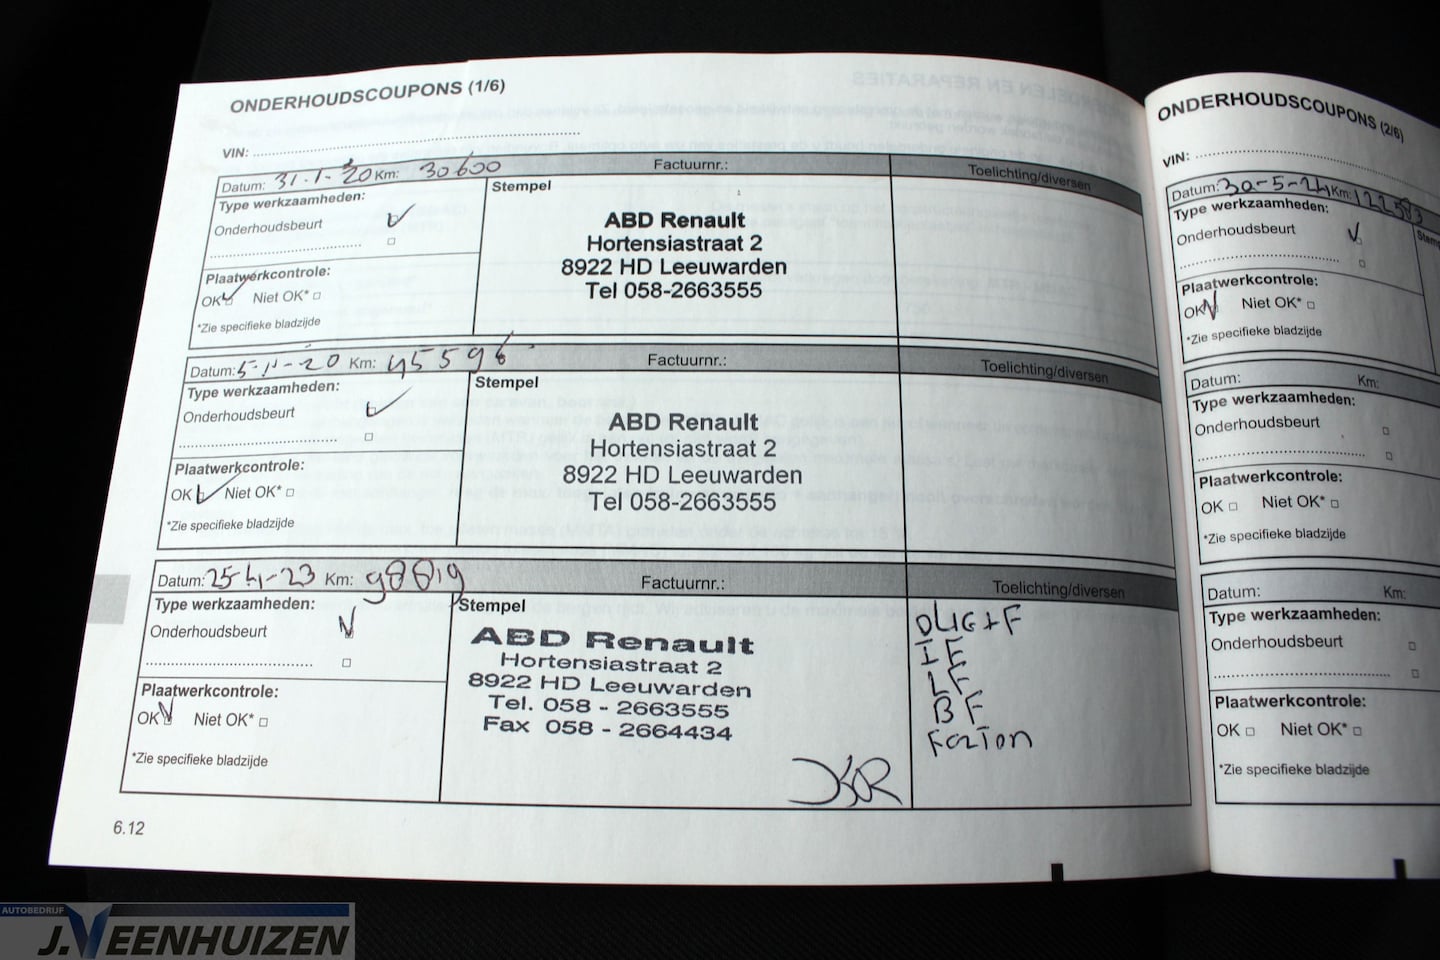 ONDERHOUDSCOUPONS (1/6)
VIN:
Datum: 31-1-20 Km: 30600 Factuurnr.: Toelichting/diversen
Type werkzaamheden:
Onderhoudsbeurt
Plaatwerkcontrole:
OK Niet OK*
*Zie specifieke bladzijde
Stempel
ABD Renault
Hortensiastraat 2
8922 HD Leeuwarden
Tel 058-2663555
Datum: 5-11-20 Km: 45596 Factuurnr.: Toelichting/diversen
Type werkzaamheden:
Onderhoudsbeurt
Plaatwerkcontrole:
OK Niet OK*
*Zie specifieke bladzijde
Stempel
ABD Renault
Hortensiastraat 2
8922 HD Leeuwarden
Tel 058-2663555
Datum: 25-4-23 Km: 98819 Factuurnr.: Toelichting/diversen
Type werkzaamheden:
Onderhoudsbeurt
Plaatwerkcontrole:
OK Niet OK*
*Zie specifieke bladzijde
Stempel
ABD Renault
Hortensiastraat 2
8922 HD Leeuwarden
Tel. 058 - 2663555
Fax 058 - 2664434
IF
LF
BF
6.12
ONDERHOUDSCOUPONS (2/6)
VIN:
Datum: 30-5-24 Km: 122583
Type werkzaamheden:
Onderhoudsbeurt
Plaatwerkcontrole:
OK Niet OK*
*Zie specifieke bladzijde
Datum: Km:
Type werkzaamheden:
Onderhoudsbeurt
Plaatwerkcontrole:
OK Niet OK*
*Zie specifieke bladzijde
Datum: Km:
Type werkzaamheden:
Onderhoudsbeurt
Plaatwerkcontrole:
OK Niet OK*
*Zie specifieke bladzijde
AUTOBEDRIJF
J.VEENHUIZEN